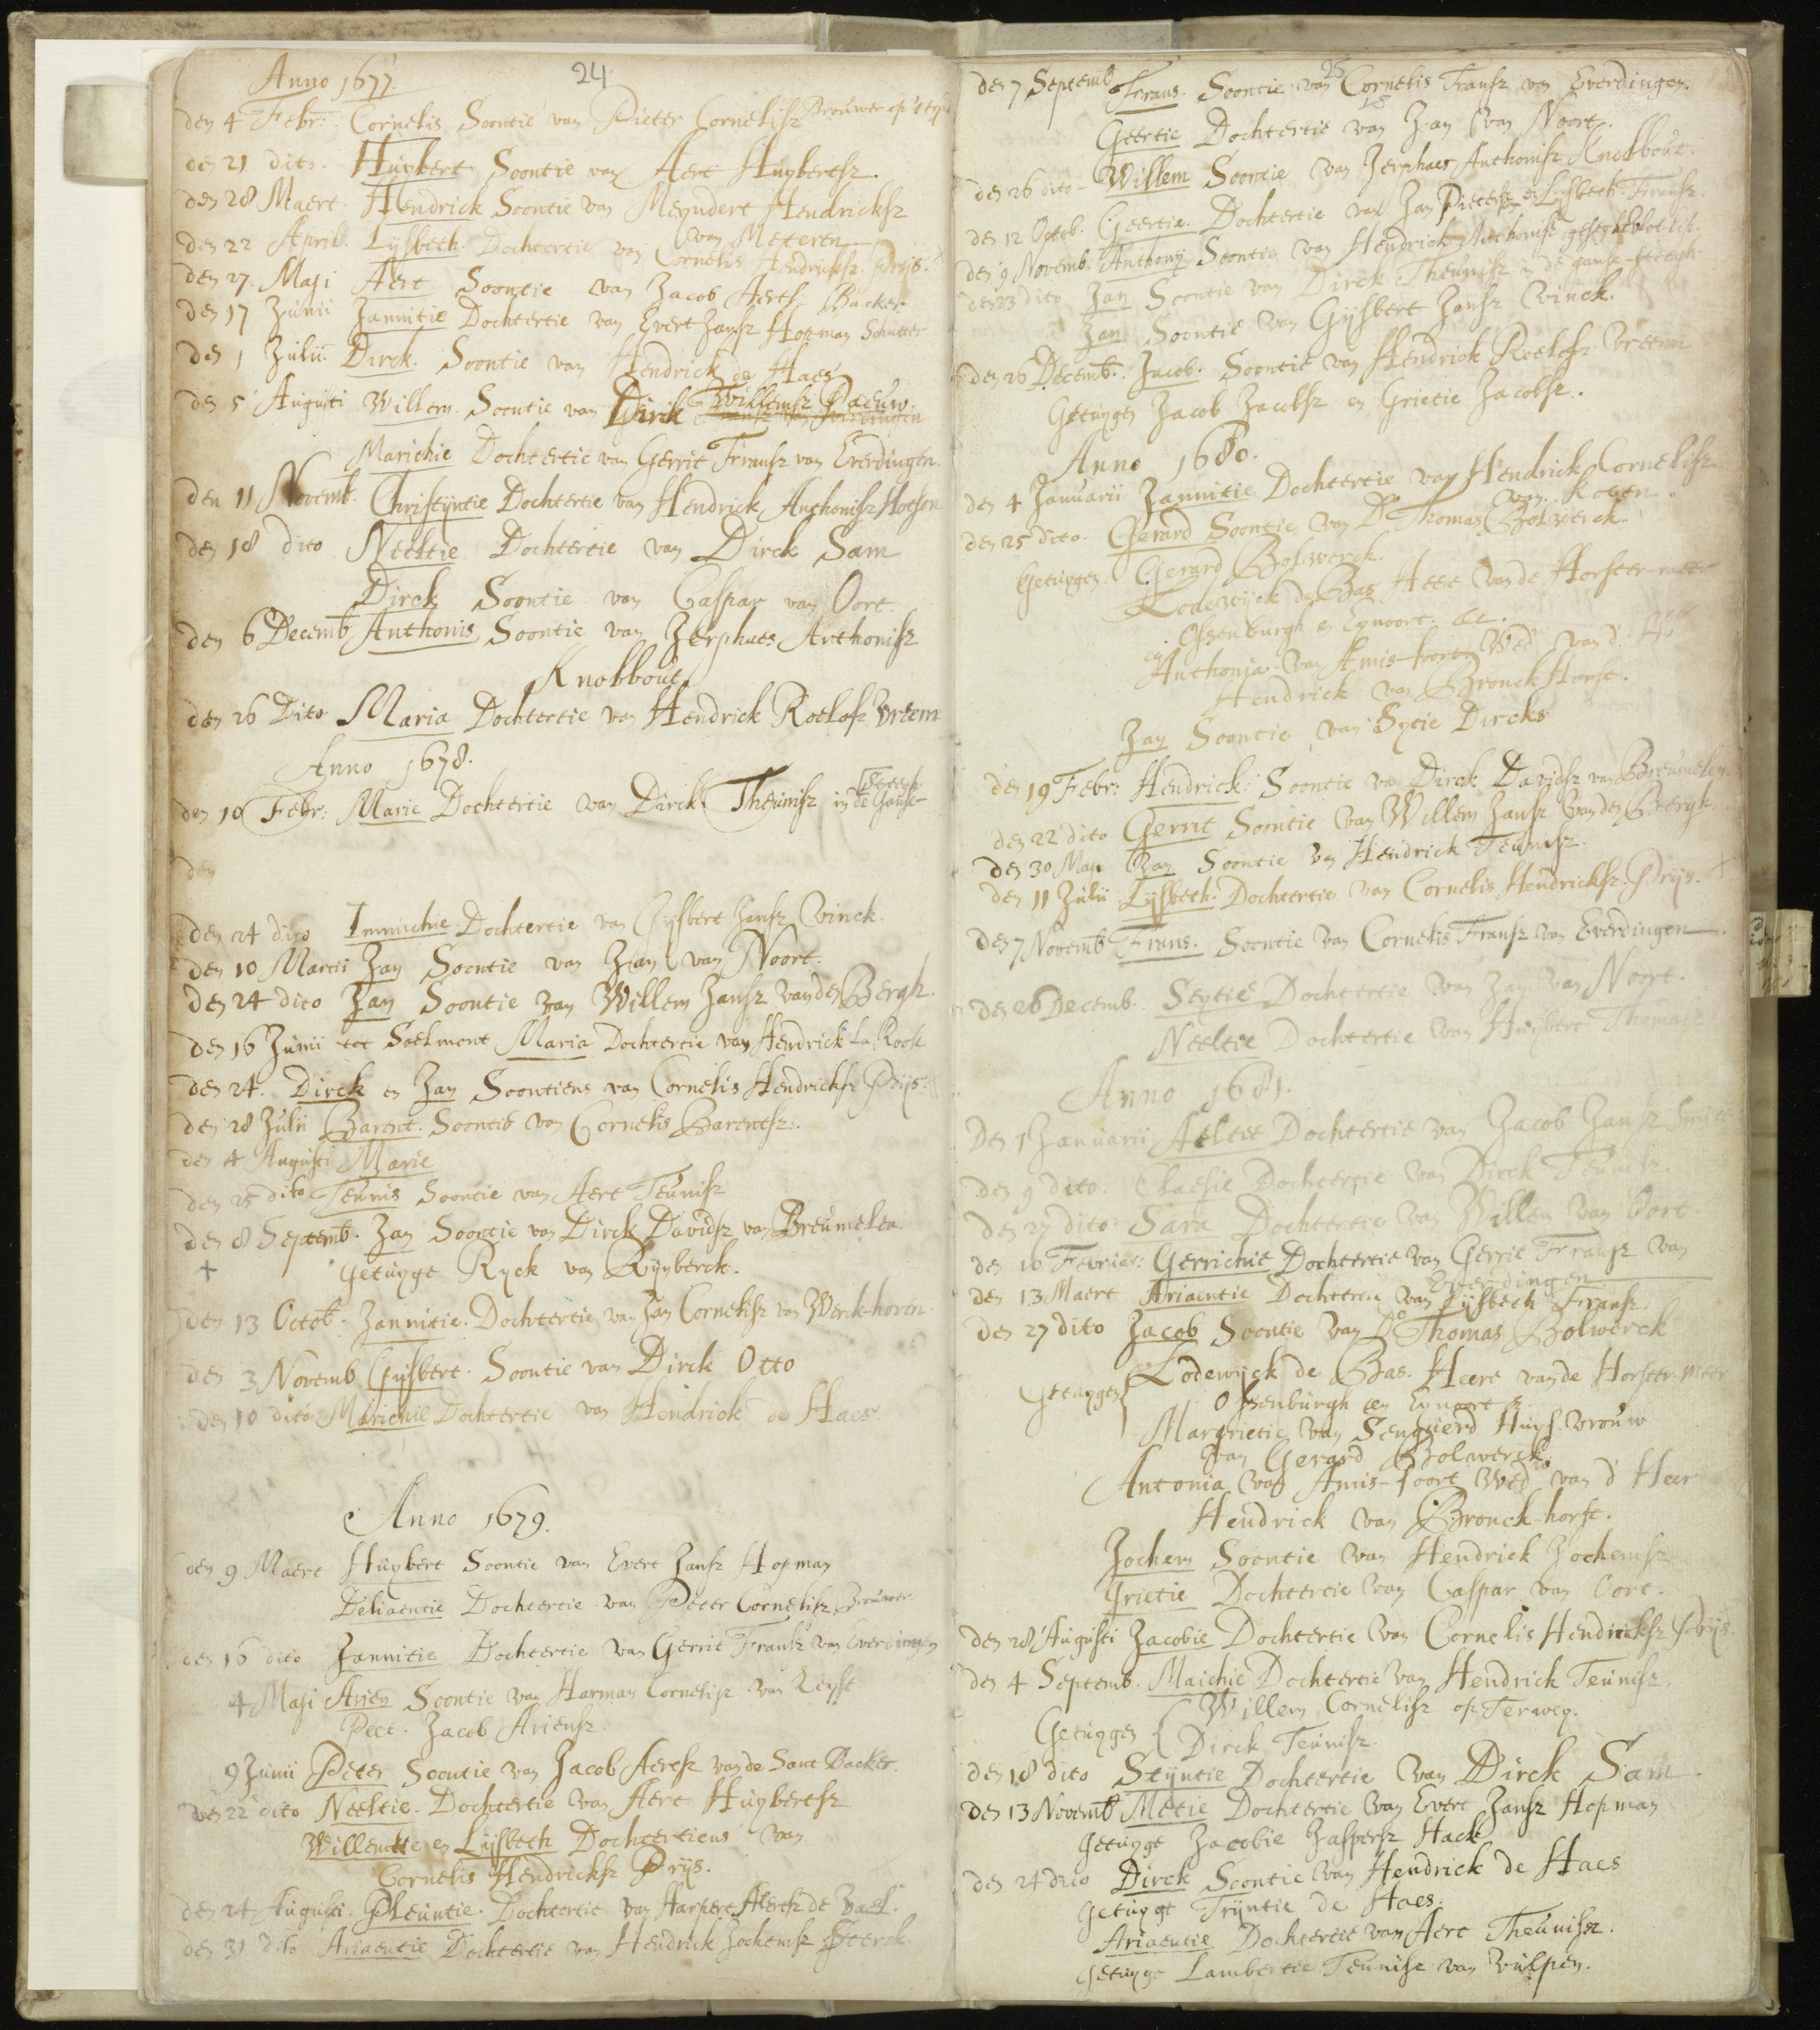 24
Anno 1677.
den 4 Febr: Cornelis Soontie van Pieter Cornelisz Brouwer op 't
den 21 dito. Huybert Soontie van Aert Huybertsz.
den 28 Maert. Hendrick Soontie van Meyndert Hendricksz
van Meteren
den 22 April. Lysbeth. Dochtertie van Cornelis Hendricksz. Prijs.
den 27. Maji Aert Soontie van Jacob Aertsz Backer
den 17 Junii Jannitie Dochtertie van Evert Jansz Hopman Schutter
den 1 Julii. Dirck. Soontie van Hendrick de Haes
den 5 Augusti Willem. Soontie van Dirik Willemsz Paeuw.
Marichie Dochtertie van Gerrit Fransz van Everdingen.
den 11 Novemb. Christyntie Dochtertie van Hendrick Anthonisz Hotson
den 18 dito Neeltie Dochtertie van Dirck Sam
Dirck Soontie van Caspar van Oort
den 6 Decemb Anthonis Soontie van Jerphaes Anthonisz
Knobbout
den 26 Dito Maria Dochtertie van Hendrick Roelofz Vreem
Anno 1678.
den 10 Febr: Marie Dochtertie van Dirck Theunisz in de Ganse
Steegh
den
den 24 dito Immichie Dochtertie van Gysbert Jansz Vinck.
den 10 Martii Jan Soontie van Jan van Noort.
den 24 dito Jan Soontie van Willem Jansz vanden Bergh.
den 16 Junii tot Soelmont Maria Dochtertie van Hendrick La Roch
den 24. Dirck en Jan Soontiens van Cornelis Hendricksz Prijs.
den 28 Julii Barent. Soontie van Cornelis Barentsz.
den 4 Augusti Marie
den 25 dito Teunis Soontie van Aert Teunisz
den 8 Septemb. Jan Soontie van Dirck Davidsz van Breumelen
+ getuyge Ryck van Rynberck.
den 13 Octob. Jannitie. Dochtertie van Jan Cornelisz van Werck-hoven.
den 3 Novemb Gysbert. Soontie van Dirck Otto
den 10 dito Marichie Dochtertie van Hendrick de Haes.
Anno 1679.
den 9 Maert Huybert Soontie van Evert Jansz Hopman
Deliaentie Dochtertie van Peter Cornelisz Brouwer
den 16 dito Jannitie Dochtertie van Gerrit Fransz van Everdingen
4 Maji Arien Soontie van Harman Cornelisz van Zeyst
Peet. Jacob Ariensz.
9 Junii Peter Soontie van Jacob Aertsz vande Sant Backer.
den 22 dito Neeltie. Dochtertie van Aert Huybertsz
Willemtie en Lijsbeth Dochtertiens van
Cornelis Hendricksz Prijs.
den 24 Augusti. Pleuntie. Dochtertie van Harpert Aertsz de Vael.
den 31 dito Ariaentie Dochtertie van Hendrick Jochemsz Sterck.
25
den 7 Septemb Frans. Soontie van Cornelis Fransz van Everdingen.
Geertie Dochtertie van Jan van Noort.
den 26 dito - Willem Soontie van Jerphaes Anthonisz Knobbout.
den 12 Octob. Geertie. Dochtertie van Jan Pietersz en Lysbeth Fransz.
den 9 Novemb. Anthony Soontie van Hendrick Anthonisz geseght
den 23 dito Jan Soontie van Dirck Theunisz in de ganse-steegh
Jan Soontie van Gysbert Jansz Vinck.
den 26 Decemb. Jacob. Soontie van Hendrick Roelofz Vreem
Getuygen Jacob Jacobsz en Grietie Jacobsz.
Anno 1680.
den 4 Januarii Jannitie Dochtertie van Hendrick Cornelisz
van Koten.
den 25 dito. Gerard Soontie van Ds Thomas Bolwerck.
Getuygen Gerard Bolwerck.
Lodewyck de Bas Heer vande Horster-meer
Ossenburgh en Eynoort. &c.
en Anthonia van Amis-foort Wed van d' Heer
Hendrick van Bronck Horst.
Jan Soontie van Sytie Dircks
den 19 Febr: Hendrick: Soontie van Dirck Davidsz van Breumelen.
den 22 dito Gerrit Soontie van Willem Jansz van den Bergh
den 30 Maji Jan Soontie van Hendrick Teunisz.
den 11 Julii Lysbeth. Dochtertie van Cornelis Hendricksz. Prijs. +
den 7 Novemb Frans. Soontie van Cornelis Fransz van Everdingen.
den 26 Decemb. Seytie Dochtertie van Jan van Noort.
Neeltie Dochtertie van Huybert Thomasz
Anno 1681.
Den 1 Januarii Aeltie Dochtertie van Jacob Jansz
den 9 dito. Claesie Dochtertie van Dirck Teunisz.
den 27 dito Sara Dochtertie van Willem van Oort.
den 10 Februar: Gerrichie Dochtertie van Gerrit Fransz van
Everdingen
den 13 Maert Ariaentie Dochtertie van Lysbeth Fransz.
den 27 dito Jacob Soontie van Do Thomas Bolwerck
Getuygen { Lodewijck de Bas. Heere vande Horster-meer
Ossenburgh en Eynoort &
Margrietie van Sengwierd Huys. vrouw
van Gerard Bolwerck
Antonia van Amis-foort Wed van d' Heer
Hendrick van Bronck-horst.
Jochem Soontie van Hendrick Jochemsz
Grietie Dochtertie van Caspar van Oort.
den 28 Augusti Jacobie Dochtertie van Cornelis Hendricksz Prijs.
den 4 Septemb. Maichie Dochtertie van Hendrick Teunisz.
Getuygen { Willem Cornelisz op Terweg.
Dirck Teunisz
den 18 dito Styntie Dochtertie van Dirck Sam
den 13 Novemb Metie Dochtertie van Evert Jansz Hopman
getuyge Jacobie Jaspersz Hack
den 24 dito Dirck Soontie van Hendrick de Haes
getuyge Tryntie de Haes.
Ariaentie Dochtertie van Aert Theunisz.
getuyge Lambertie Teunisz van Vulpen.